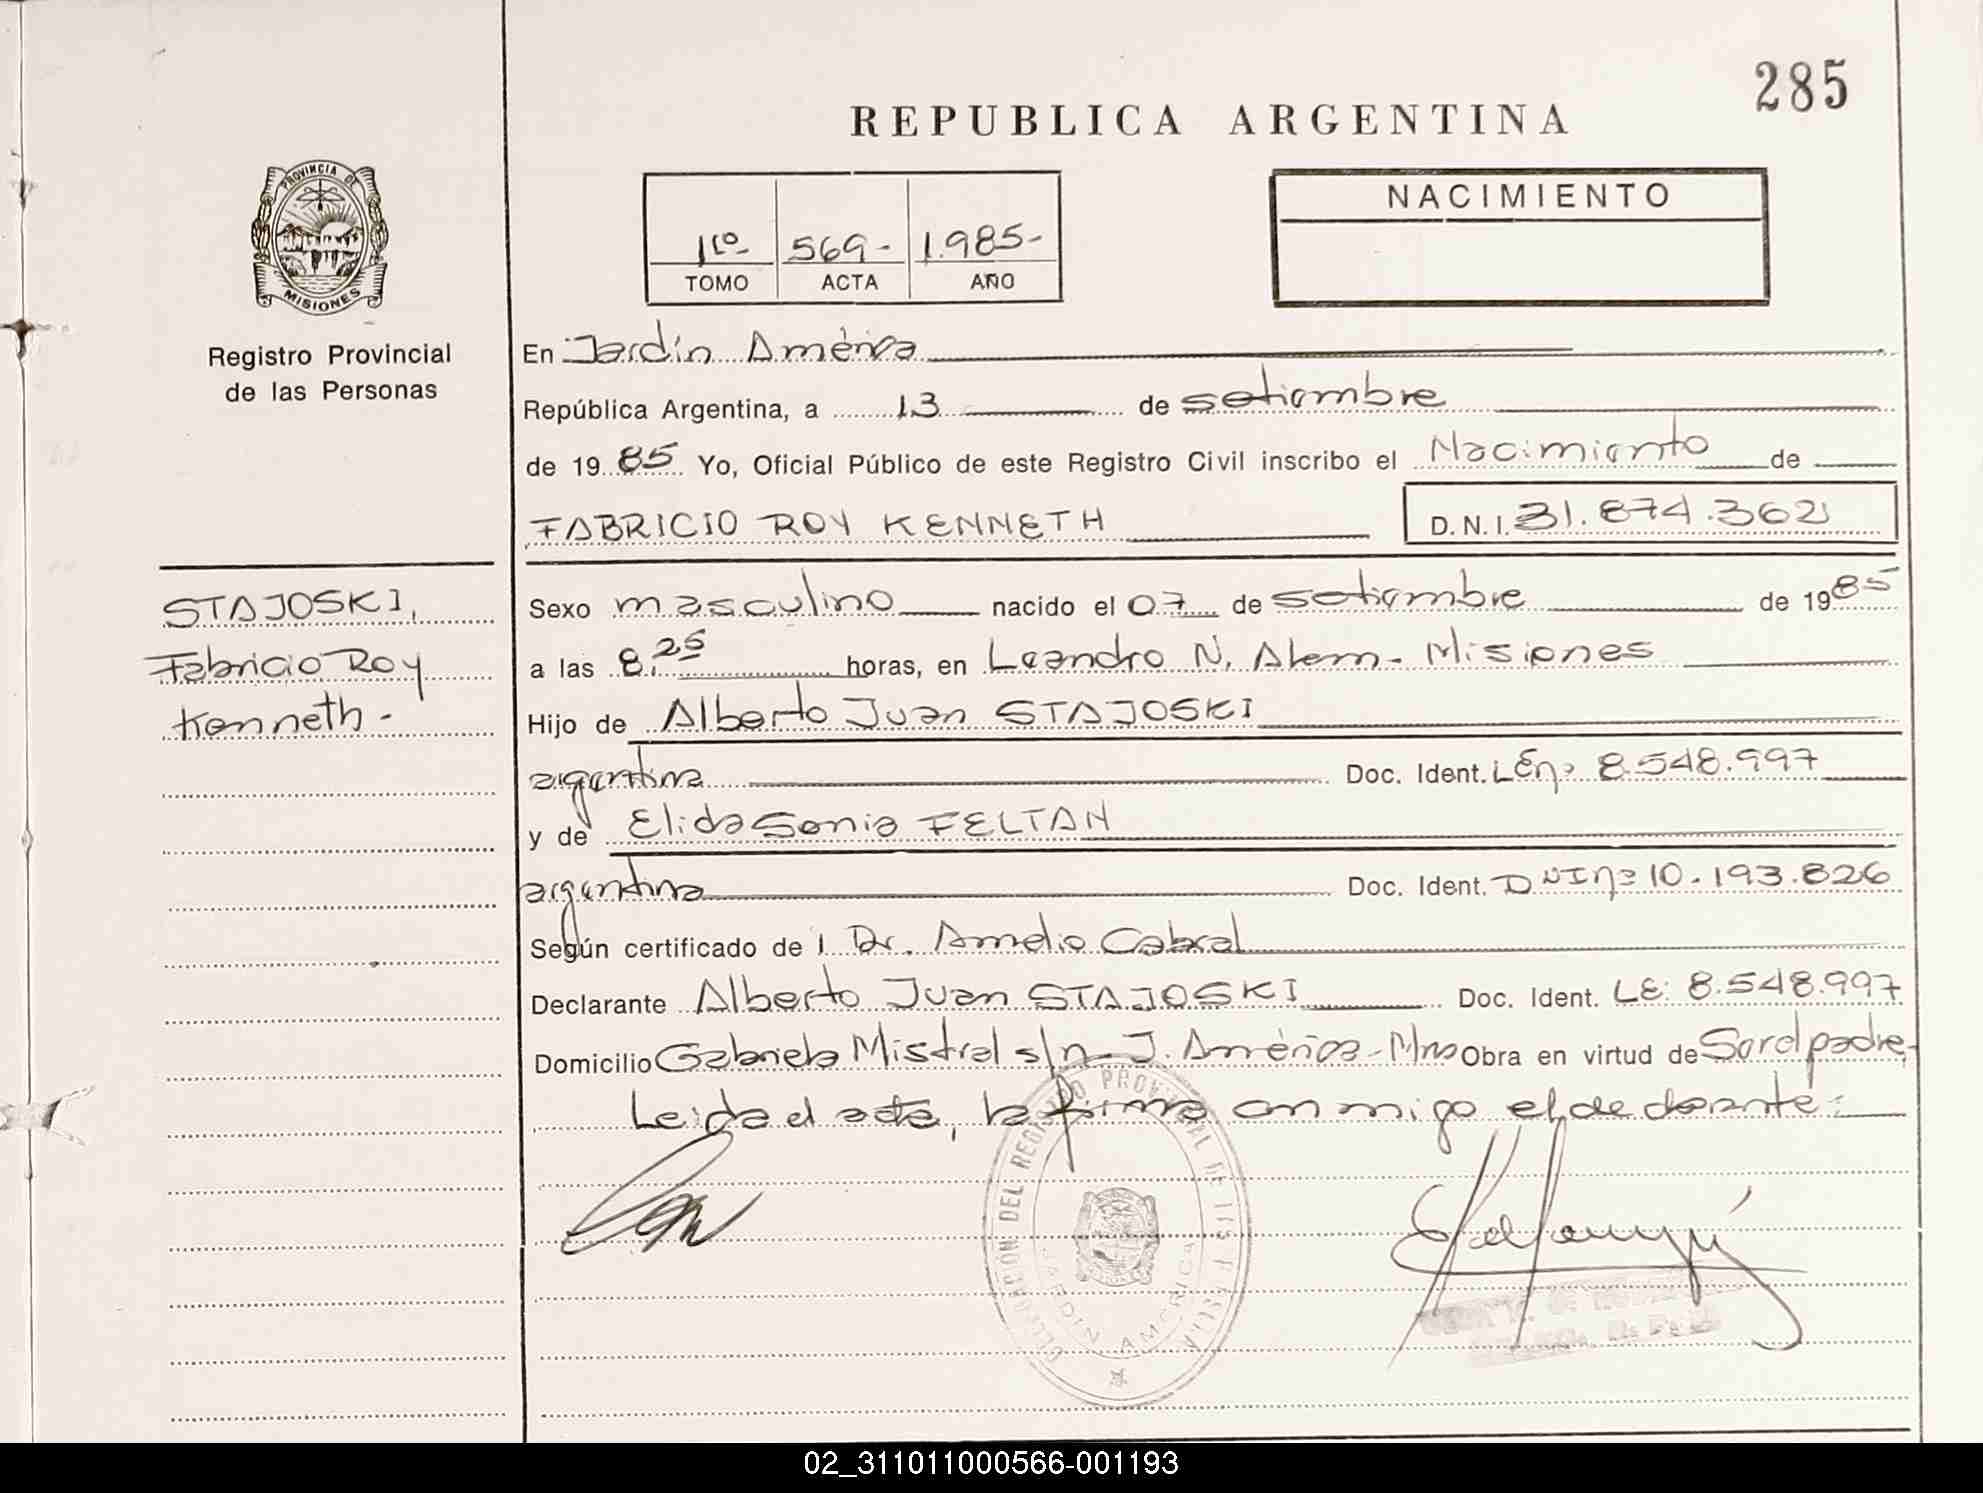 285
REPUBLICA ARGENTINA
PROVINCIA DE
MISIONES
Registro Provincial
de las Personas
NACIMIENTO
1ro 569- 1.985-
TOMO ACTA AÑO
En Jardín América
República Argentina, a 13 de setiembre
de 1985 Yo, Oficial Público de este Registro Civil inscribo el Nacimiento de
FABRICIO ROY KENNETH D.N.I. 31.874.362
STAJOSKI,
Fabricio Roy
Kenneth-
Sexo masculino nacido el 07 de setiembre de 1985
a las 8,25 horas, en Leandro N. Alem- Misiones
Hijo de Alberto Juan STAJOSKI
argentina Doc. Ident. LEnº 8.548.997
y de Elida Sonia FELTAN
argentina Doc. Ident. DNInº 10.193.826
Según certificado de Dr. Amelio Cabral
Declarante Alberto Juan STAJOSKI Doc. Ident. LE: 8.548.997
Domicilio Gabriela Mistral s/n- J. América- Mnes Obra en virtud de Ser el padre,-
Leida el acta, la firma conmigo el declarante:
DELEGACIÓN DEL REGISTRO PROVINCIAL DE LAS PERSONAS
JARDIN AMERICA
02_311011000566-001193